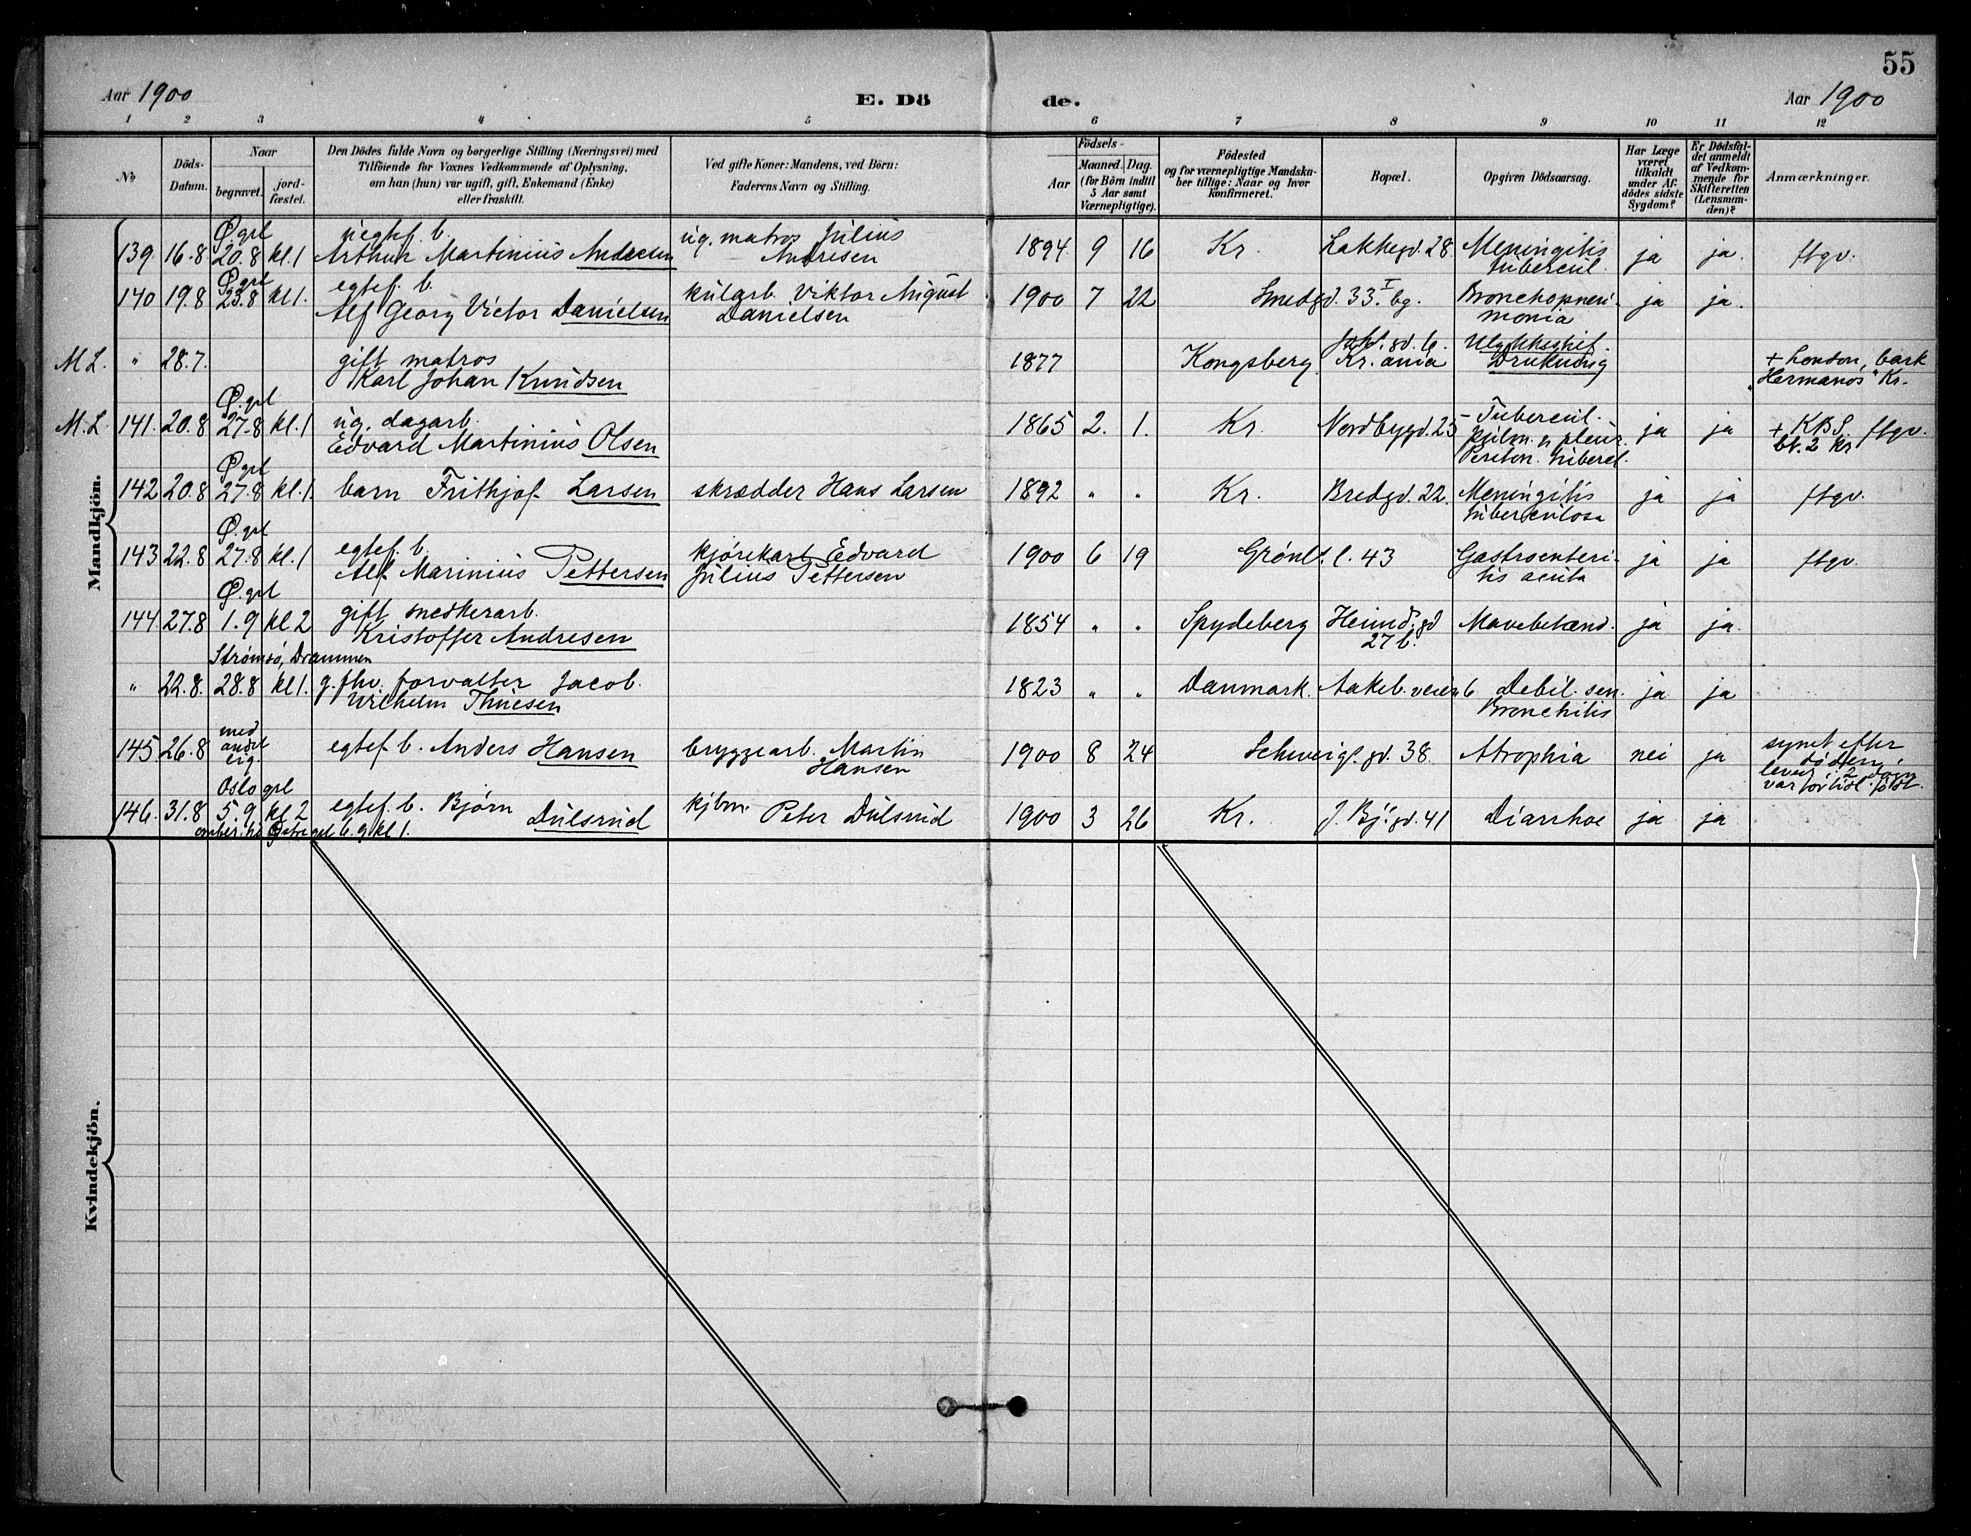 55
Aar 1900 E. Dö de. Aar 1900
1 2 3 4 5 6 7 8 9 10 11 12
No
Döds-Datum.
Naar
begravet.
jord-fæstet.
Den Dödes fulde Navn og borgerlige Stilling (Næringsvei) med
Tilföiende for Voxnes Vedkommende af Oplysning,
om han (hun) var ugift, gift, Enkemand (Enke)
eller fraskilt.
Ved gifte Koner: Mandens, ved Börn:
Faderens Navn og Stilling.
Födsels-
Aar
Maaned. Dag.
(for Börn indtil
5 Aar samt
Værnepligtige).
Födested
og for værnepligtige Mandska-
ber tillige: Naar og hvor
konfirmeret.
Bopæl.
Opgiven Dödsaarsag.
Har Læge
været
tilkaldt
under Af-
dödes sidste
Sygdom?
Er Dödsfal-
det anmeldt
af Vedkom-
mende for
Skifteretten
(Lensman-
den)?
Anmærkninger.
Mandkjön.
Ø. grl uegtef. b. ug. matros Julius
139 16.8 20.8 kl.1 Arthur Martinius Andresen Andresen 1894 9 16 Kr. Lakkegd. 28. Meningitis ja ja. ftgv.
tubercul.
Ø. grl egtef. b. kularb. Viktor August
140 19.8 23.8 kl.1. Alf Georg Victor Danielsen Danielsen 1900 7 22 Smedgd. 33. I bg. Bronchopneu- ja ja.
monia
gift matros gd. 6. Ulykkeshet.
M L. " 28.7. Karl Johan Knudsen 1877 Kongsberg Kr.ania Drukning + London, bark
"Hermanos" Kr.
Ø. grl ug. dagarb.
M. L 141. 20.8 27.8 kl.1 Edvard Martinius Olsen 1865 2. 1. Kr. Nordbygd. 25 Tubercul. ja ja + KBS. ftgv.
pulm. & pleur. bt. 2 Kr
Periton. tubercl.
Ø. grl
142 20.8 27.8 kl.1. barn Frithjof Larsen skrædder Hans Larsen 1892 " " Kr. Bredgd. 22. Meningitis ja ja ftgv.
tuberculosa
Ø. grl egtef. b. kjørekarl Edvard
143 22.8 27.8 kl.1 Alf Marinius Pettersen Julius Pettersen 1900 6 19 Grønl. l. 43 Gastroenteri- ja ja ftgv.
tis acuta
Ø. grl gift snedkerarb.
144. 27.8 1.9 kl 2 Kristoffer Andresen 1854 " " Spydeberg Heimd. gd Mavebetænd. ja ja.
27 b.
Strømsø, Drammen
" 22.8. 28.8 kl 1. g. fhv. forvalter Jacob 1823 " " Danmark. Aakeb. veien 6 Debil. sen. ja ja
Wilhelm Thuesen Bronchitis
med
andet
lig.
145 26.8 egtef. b. Anders Hansen bryggearb. Martin 1900 8 24 Schweig. gd. 38. Atrophia nei ja synet efter
Hansen døden,
levet i 2 dage
var for tidl. født.
Oslo grl
146. 31.8 5.9 kl 2 egtef. b. Bjørn Dulsrud kjbm. Peter Dulsrud 1900 3 26 Kr. J. Bj. gd. 41 Diarrhoe ja ja
6.9 kl 1.
Kvindekjön.